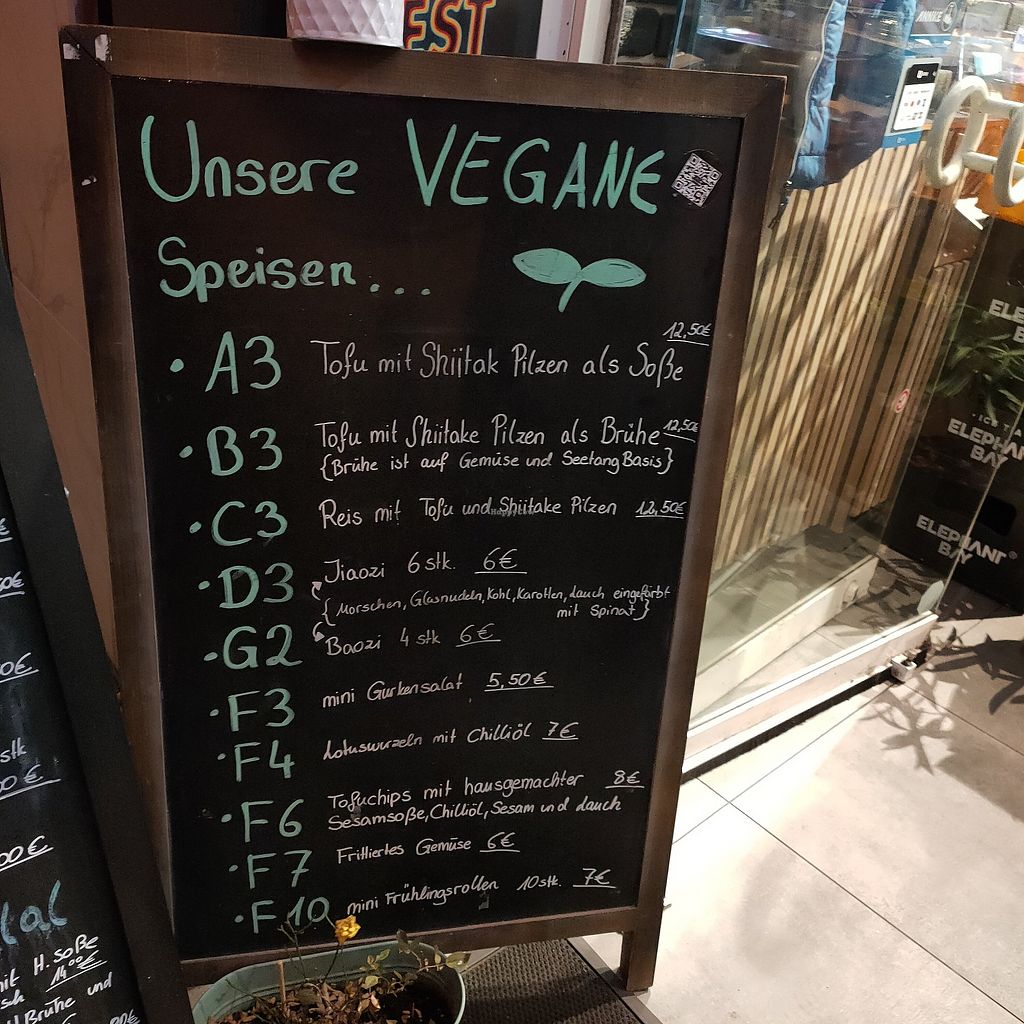 EST
Unsere VEGANE
Speisen...
12,50€
• A3 Tofu mit Shiitak Pilzen als Soße
• B3 Tofu mit Shiitake Pilzen als Brühe 12,50€
{Brühe ist auf Gemüse und Seetang Basis}
• C3 Reis mit Tofu und Shiitake Pilzen 12,50€
• D3 Jiaozi 6 stk. 6€
{Morschen, Glasnudeln, Kohl, Karotten, dauch eingefärbt
mit Spinat}
• G2 Baozi 4 stk 6€
• F3 mini Gurkensalat 5,50€
• F4 Lotuswurzeln mit Chilliöl 7€
• F6 Tofuchips mit hausgemachter 8€
Sesamsoße, Chilliöl, Sesam und dauch
• F7 Frittiertes Gemüse 6€
• F10 mini Frühlingsrollen 10 stk. 7€
stk
00€
mit H. Soße
14⁰⁰€
Brühe und
ELEPHANT
BAY
ELEPHANT
BAY